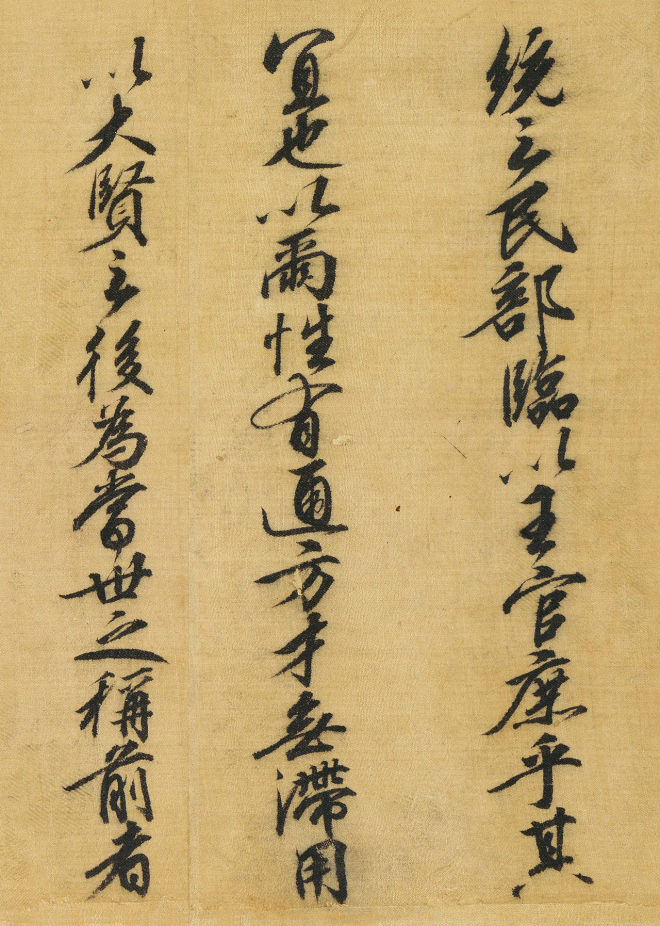 統之民部臨以王官庶乎其
宜也以爾性有通方才無滯用
以大賢之後為當世之稱前者